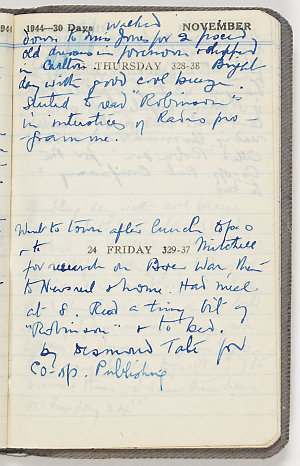 1944—30 Days NOVEMBER
walked
down to Miss Jones for 2 pieced
old dresses in forenoon & shopped
in Carlton THURSDAY 328-38 Bright
day with good cool breeze.
Started to read "Robinson"
in interstices of Radio pro-
gramme.
Went to town after lunch to P O
& to 24 FRIDAY 329-37 Mitchell
for research on Boer War, then
to Newsreel & home. Had meal
at 8. Read a tiny bit of
"Robinson" & to bed.
by Desmond Tate for
Co-op. Publishing